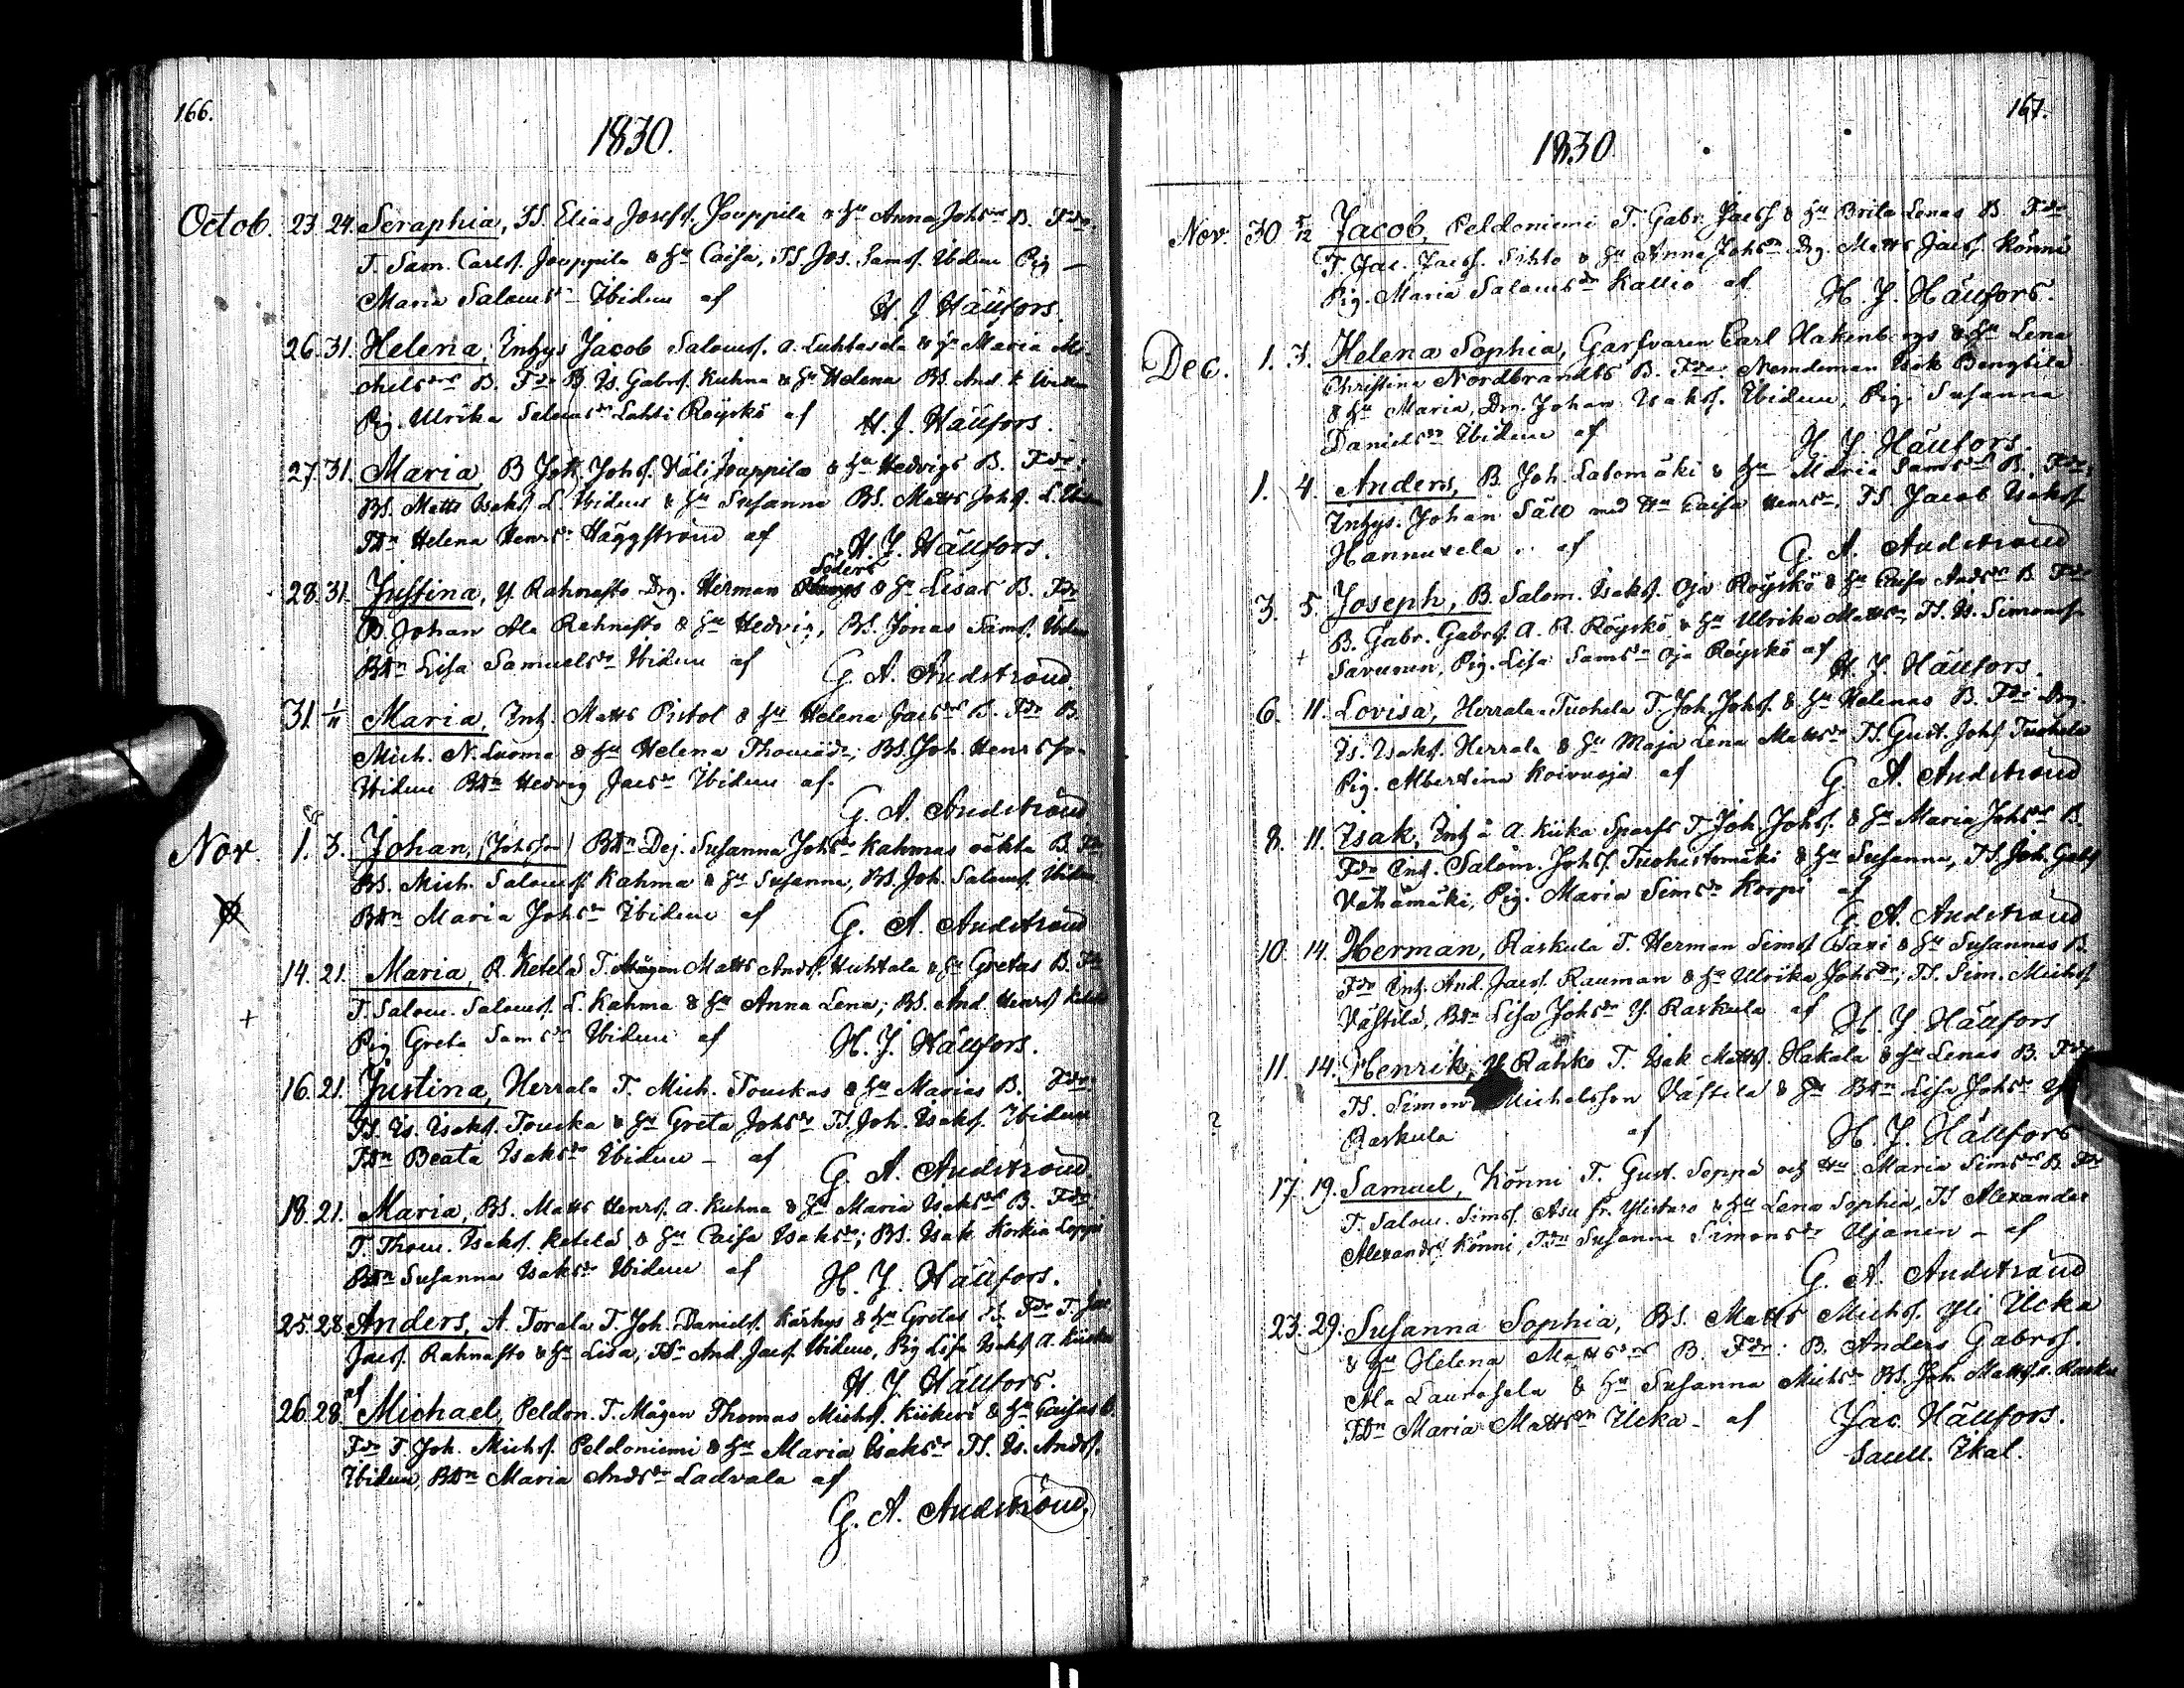 166.
1830.
Octob. 23. 24. Seraphia, TS. Elias Josefs. Jouppila & Hu Anna Johsdrs B. Fdr.
T. Sam. Carls. Jouppila & Hu Caisa, TS Jos. Sams. Ibidem Pig
Maria Salomsdr Ibidem af H. J. Hällfors.
26. 31. Helena, Inhys Jacob Saloms. a. Luhtasela & Hu Maria Mi-
chelsdrs B. Fdr B. Is. Gabrs. Kuhna & Hu Helena BS. And.
Pig. Ulrika Salomsdr Lahti Röyskö af H. J. Hällfors.
27. 31. Maria, B Joh. Johs. Väli Jouppila & Hu Hedvigs B. Fdr:
BS. Matts Isaks. L. Ibidem & Hu Susanna BS. Matts Johs. L. Ibidem
TDr Helena Henrsdr Häggström af H. J. Hällfors.
28. 31. Justina, Y. Rahnasto Drg. Herman Söders & Hu Lisas B. Fdr
B Johan Ala Rahnasto & Hu Hedvig, BS. Jonas Sams. Ibidem
BDr Lisa Samuelsdr Ibidem af G. A. Andström.
31. 1/11 Maria, Inh. Matts Pistol & Hu Helena Jacsdrs B. Fdr B.
Mich. N. Luoma & Hu Helena Thomasdr; BS. Joh. Henrsson
Ibidem BDr Hedvig Jacsdr Ibidem af.
G. A. Andström
Nov. 1. 3. Johan, (Johsson) BDr Dej. Susanna Johsdr Kahmas oäkta B. Fdr
BS. Mich. Saloms. Kahma & Hu Susanna, BS. Joh. Saloms. Ibidem
BDr Maria Johsdr Ibidem af G. A. Andström
14. 21. Maria, R. Ketelä T. Mågen Matts Ands. Huhtala & Hu Gretas B. Fdr
T. Salom. Saloms. L. Kahma & Hu Anna Lena; BS. And. Henrs. Ketelä
Pig Greta Samsdr Ibidem af H. J. Hällfors.
16. 21. Justina, Herrala T. Mich. Touskas & Hu Marias B. Fdr
TS. Is. Isaks. Touska & Hu Greta Johsdr TS. Joh. Isaks. Ibidem
TDr Beata Isaksdr Ibidem – af G. A. Andström.
18. 21. Maria, BS. Matts Henrs. a. Kuhna & Hu Maria Isaksdrs B. Fdr:
T. Thom. Isaks. Ketelä & Hu Caisa Isaksdr; BS. Isak Korkia Loppi
BDr Susanna Isaksdr Ibidem af H. J. Hällfors.
25. 28. Anders, A. Torala T. Joh. Daniels. Kärhys & Hu Gretas B. Fdr T. Jac.
Jacs. Rahnasto & Hu Lisa, TSn And. Jacs. Ibidem, Pig Lisa Isaks
af H. J. Hällfors.
26. 28. Michael, Peldon. T. Mågen Thomas Michs. Kiikeri & Hu Caisas B.
Fdr T. Joh. Michs. Peldoniemi & Hu Maria Isaksdr TS. Is. Ands.
Ibidem, BDr Maria Andsdr Ladvala af
G. A. Andström.
167.
1830
Nov. 30 5/12 Jacob, Peldoniemi T. Gabr. Jacs & Hu Brita Lenas B. Fdr
T. Jac. Jacs. Sihto & Hu Anna Johsdr Drg. Matts Jacs. Könni
Pig. Maria Salomsdr Kallio af H. J. Hällfors.
Dec. 1. 3. Helena Sophia, Garfvaren Carl Hakenbergs & Hu Lena
Christina Nordbrandts B. Fdr Nemdeman Isak Bengtila
& Hu Maria, Drn. Johan Isaks. Ibidem, Pig. Susanna
Danielsdr Ibidem af H. J. Hällfors.
1. 4. Anders, B. Joh. Latomäki & Hu Maria Samsdrs B. Fdr;
Inhys. Johan Säll med Hu Caisa Henrsdr, TS Jacob Isaks
Hannuxela .. af G. A. Andström
3. 5. Joseph, B. Salom. Isaks. Oja Röyskö & Hu Caisa Andsdrs B. Fdr
B. Gabr. Gabrs. A. R. Röyskö & Hu Ulrika Mattsdr, TS. Is. Simons
Savunen, Pig. Lisa Samsdr Oja Röyskö af H. J. Hällfors.
6. 11. Lovisa, Herrala-Tuohela T. Joh. Johs. & Hu Helenas B. Fdr Drg.
Is. Isaks. Herrala & Hu Maja Lena Mattsdr TS. Gust. Johs Tuohela
Pig. Albertina Koivuoja af G. A. Andström
8. 11. Isak, Inh å A. Kiika Sparfs T. Joh Johs. & Hu Maria Johsdrs B.
Fdr Inh. Salom. Johs. Tuohistomäki & Hu Susanna, TS. Joh. Gabs
Vähämäki, Pig. Maria Simsdr Korpi af
G. A. Andström
10. 14. Herman, Raskula T. Herman Sims Saxi & Hu Susannas B.
Fdr Inh. And. Jacs. Rauman & Hu Ulrika Johsdr; TS. Sim. Michs
Västilä, BDr Lisa Johsdr Y. Raskula af H. J. Hällfors
11. 14. Henrik, Rahko T. Isak Matts. Hakala & Hu Lenas B. Fdr
TS. Simon Michelsson Västilä & BDr Lisa Johsdr Y
? Raskula af H. J. Hällfors
17. 19. Samuel, Könni T. Gust. Seppä och Hu Maria Simsdrs B. Fdr
T. Salom. Sims. Asu fr. Ylistaro & Hu Lena Sophia, TS Alexander
Alexands. Könni, TDr Susanna Simonsdr Ujanen – af
G. A. Andström
23. 29. Susanna Sophia, BS. Matts Michs. Yli Ucka
& Hu Helena Mattsdrs B. Fdr: B. Anders Gabrs.
Ala Laurosela & Hu Susanna Michsdr BS. Joh. Matts. Rasku
TDr Maria Mattsdr Ucka – af Jac. Hällfors.
Sacell. Ikal.